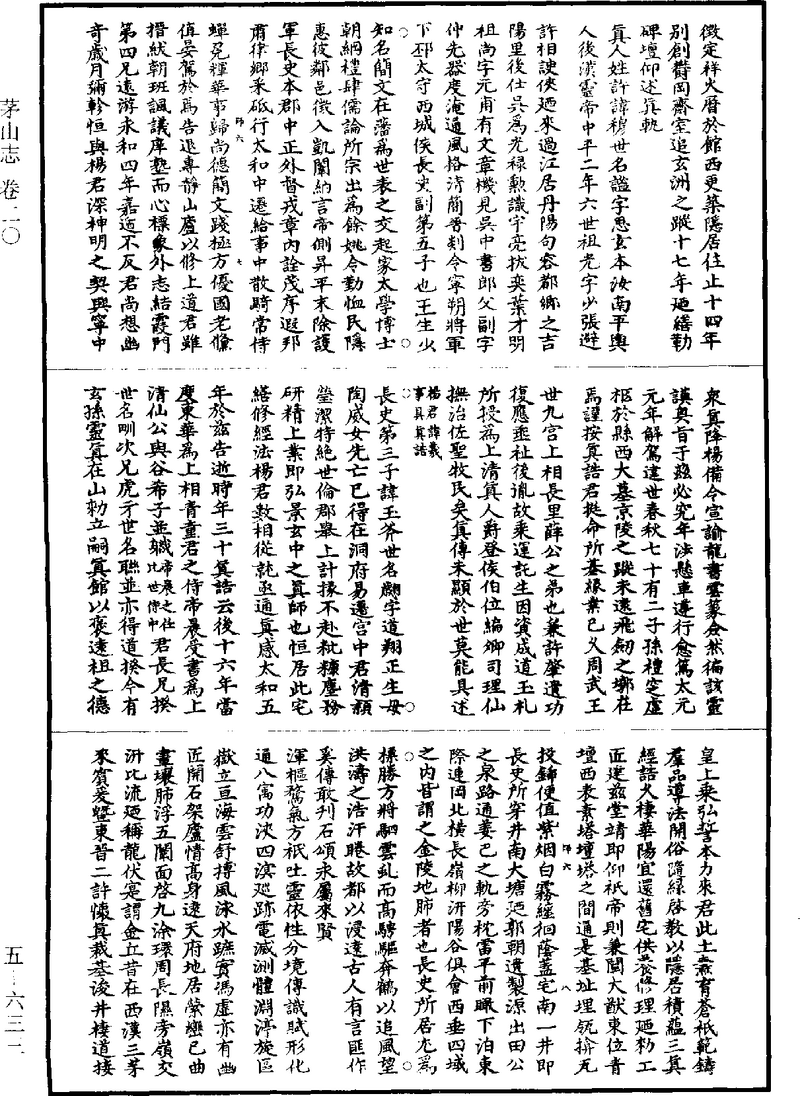 茅山志 卷二〇
徵定祥火曆於館西更築隱居住止十四年
別創欝岡齋室追玄洲之蹤十七年廼繕勒
碑壇仰述眞軌
眞人姓許諱穆世名謐字思玄本汝南平輿
人後漢靈帝中平二年六世祖光字少張避
許相諛俠廼來過江居丹陽句容都鄉之吉
陽里後仕吳爲光祿勳識宇亮拔奕葉才明
祖尚字元甫有文章機見吳中書郎父副字
仲先器度淹通風格清簡晉剡令寧朔將軍
下邳太守西城侯長史副第五子也正生少
知名簡文在藩爲世表之交起家太學博士
朝綱禮肆儒論所宗出爲餘姚令勤恤民隱
惠彼鄰邑徵入凱闈納言帝側昇平末除護
軍長史本郡中正外督戎章內詮茂序遐邦
肅律鄉采砥行太和中遷給事中散騎常侍
蟬冕輝華事歸尚德簡文踐極方優國老儵
值晏駕於焉告退專靜山廬以修上道君雖
搢紱朝班諷議庠塾而心標象外志結霞門
第四兄遠游永和四年嘉遁不反君尚想幽
奇歲月彌軫恒與楊君深神明之契興寧中
衆眞降楊備令宣諭龍書雲篆僉然徧該靈
謨奥旨于兹必究年涉懸車遵行愈篤太元
元年解駕違世春秋七十有二子孫禮窆虛
柩於縣西大墓京陵之蹤未遠飛劒之槨在
焉謹按眞誥君挺命所基緣業已久周武王
世九宮上相長里薛公之弟也兼許肇遺功
復應垂祉後胤故乘運託生因資成道玉札
所授爲上清眞人爵登侯伯位編卿司理仙
撫治佐聖牧民矣眞傳未顯於世莫能具述
楊君諱羲
事具眞誥
長史第三子諱玉斧世名翽字道翔正生母
陶威女先亡已得在洞府易遷宮中君清頴
瑩潔特絕世倫郡舉上計掾不赴粃糠塵務
研精上業即弘景玄中之眞師也恒居此宅
繕修經法楊君數相從就亟通眞感太和五
年於兹告逝時年三十眞誥云後十六年當
度東華爲上相青童君之侍帝晨受書爲上
清仙公與谷希子並職帝晨之任比世侍中君長兄揆
世名甽次兄虎牙世名聯並亦得道揆今有
玄孫靈眞在山勑立嗣眞館以褒遠祖之德
皇上乘弘誓本力來君此土蕭育蒼祇範鑄
羣品導法開俗隨緣啓教以隱居積蘊三眞
經誥久棲華陽宜還舊宅供養修理廼勑工
匠建兹堂靖即仰祇帝則兼闡大猷東位青
壇西表素塔壇塔之間通是基址埋甎揜瓦
投鍤便值紫烟白霧纏徊蔭蓋宅南一井即
長史所穿井南大塘廼郭朝遺製源出田公
之泉路通姜巴之軌旁枕雷平前瞰下泊東
際連岡北横長嶺柳汧陽谷俱會西垂四域
之內皆謂之金陵地肺者也長史所居尤爲
標勝方將駟雲虬而高騁驅奔鶴以追風望
洪濤之浩汗睠故都以浸遠古人有言匪作
奚傳敢刋石頌永屬來賢
渾樞騖氣方祇吐靈依性分境傳識賦形化
通八㝢功浹四溟巡跡電滅測體淵渟旋區
嶽立亘海雲舒摶風泳水蹠實馮虛亦有幽
匠開石架廬情高身遠天府地居縈巒已曲
畫壤肺浮五闌面啓九涂環周長隰旁嶺交
汧比流廼稱龍伏寔謂金丘昔在西漢三茅
來賓爰曁東晉二許懷眞裁基浚井棲道接
五—六三二